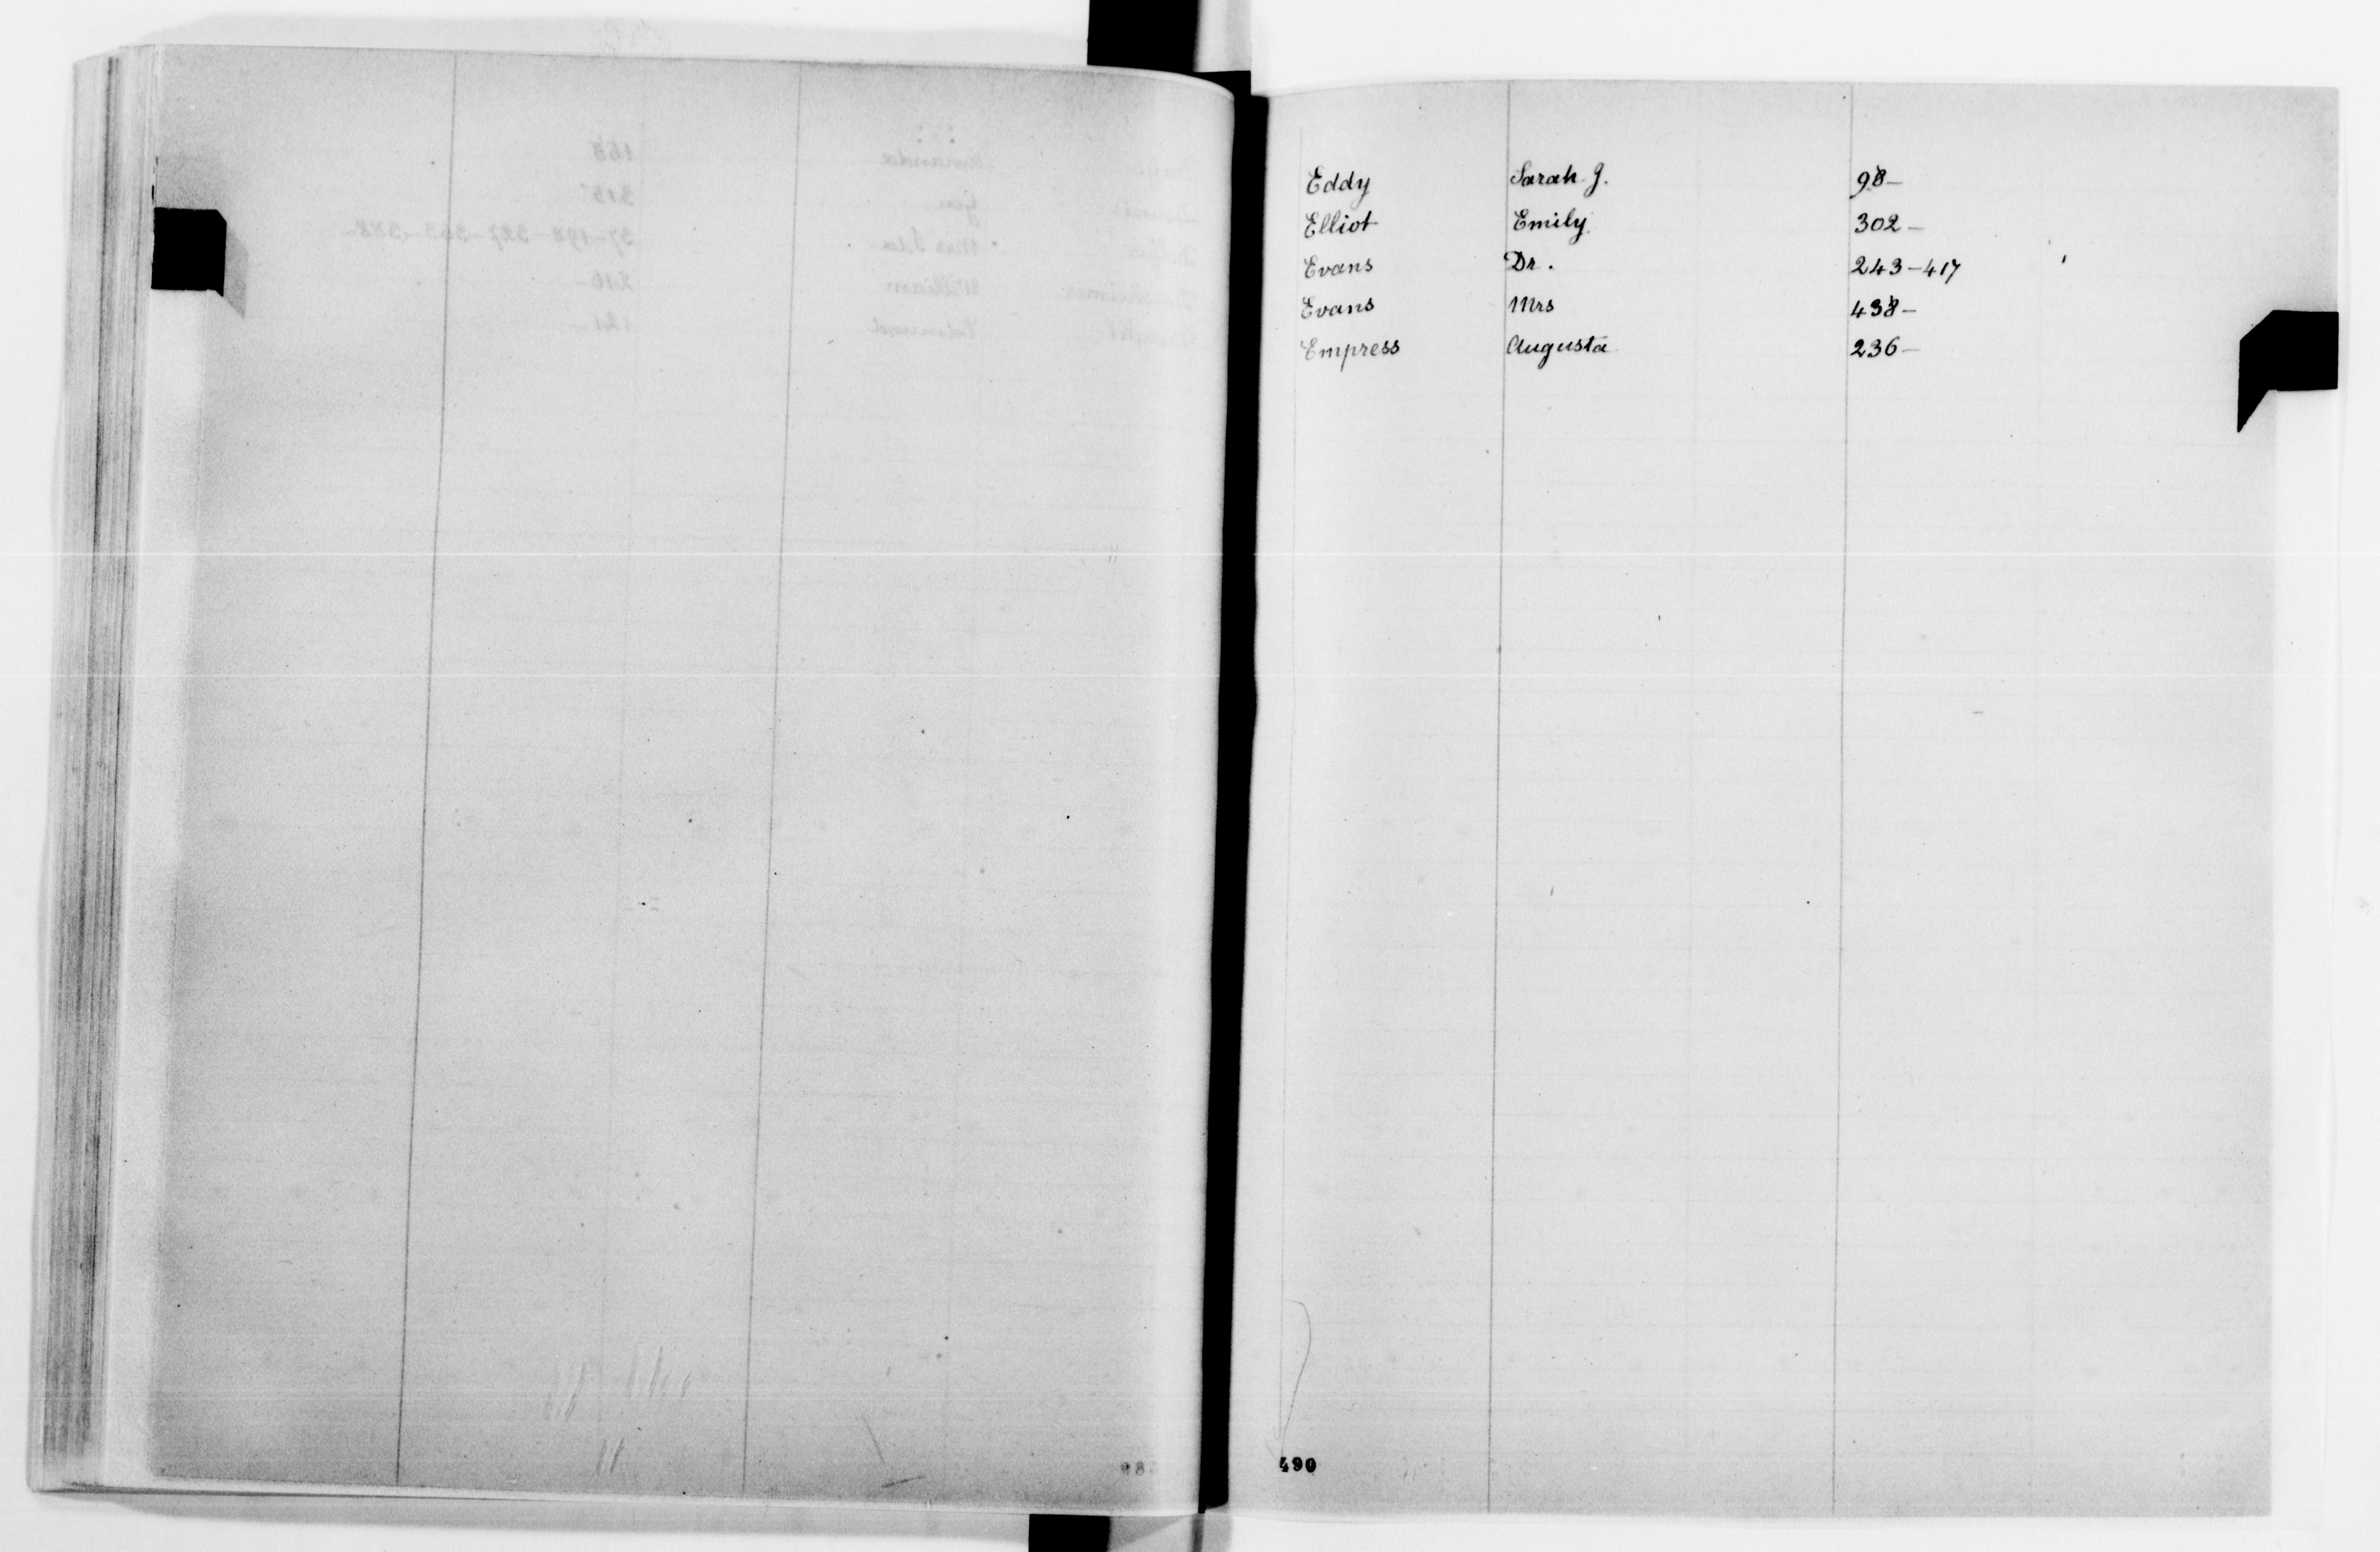 Eddy Sarah J. 98-
Elliot Emily 302-
Evans Dr. 243-417
Evans Mrs 438-
Empress Augusta 236-
490